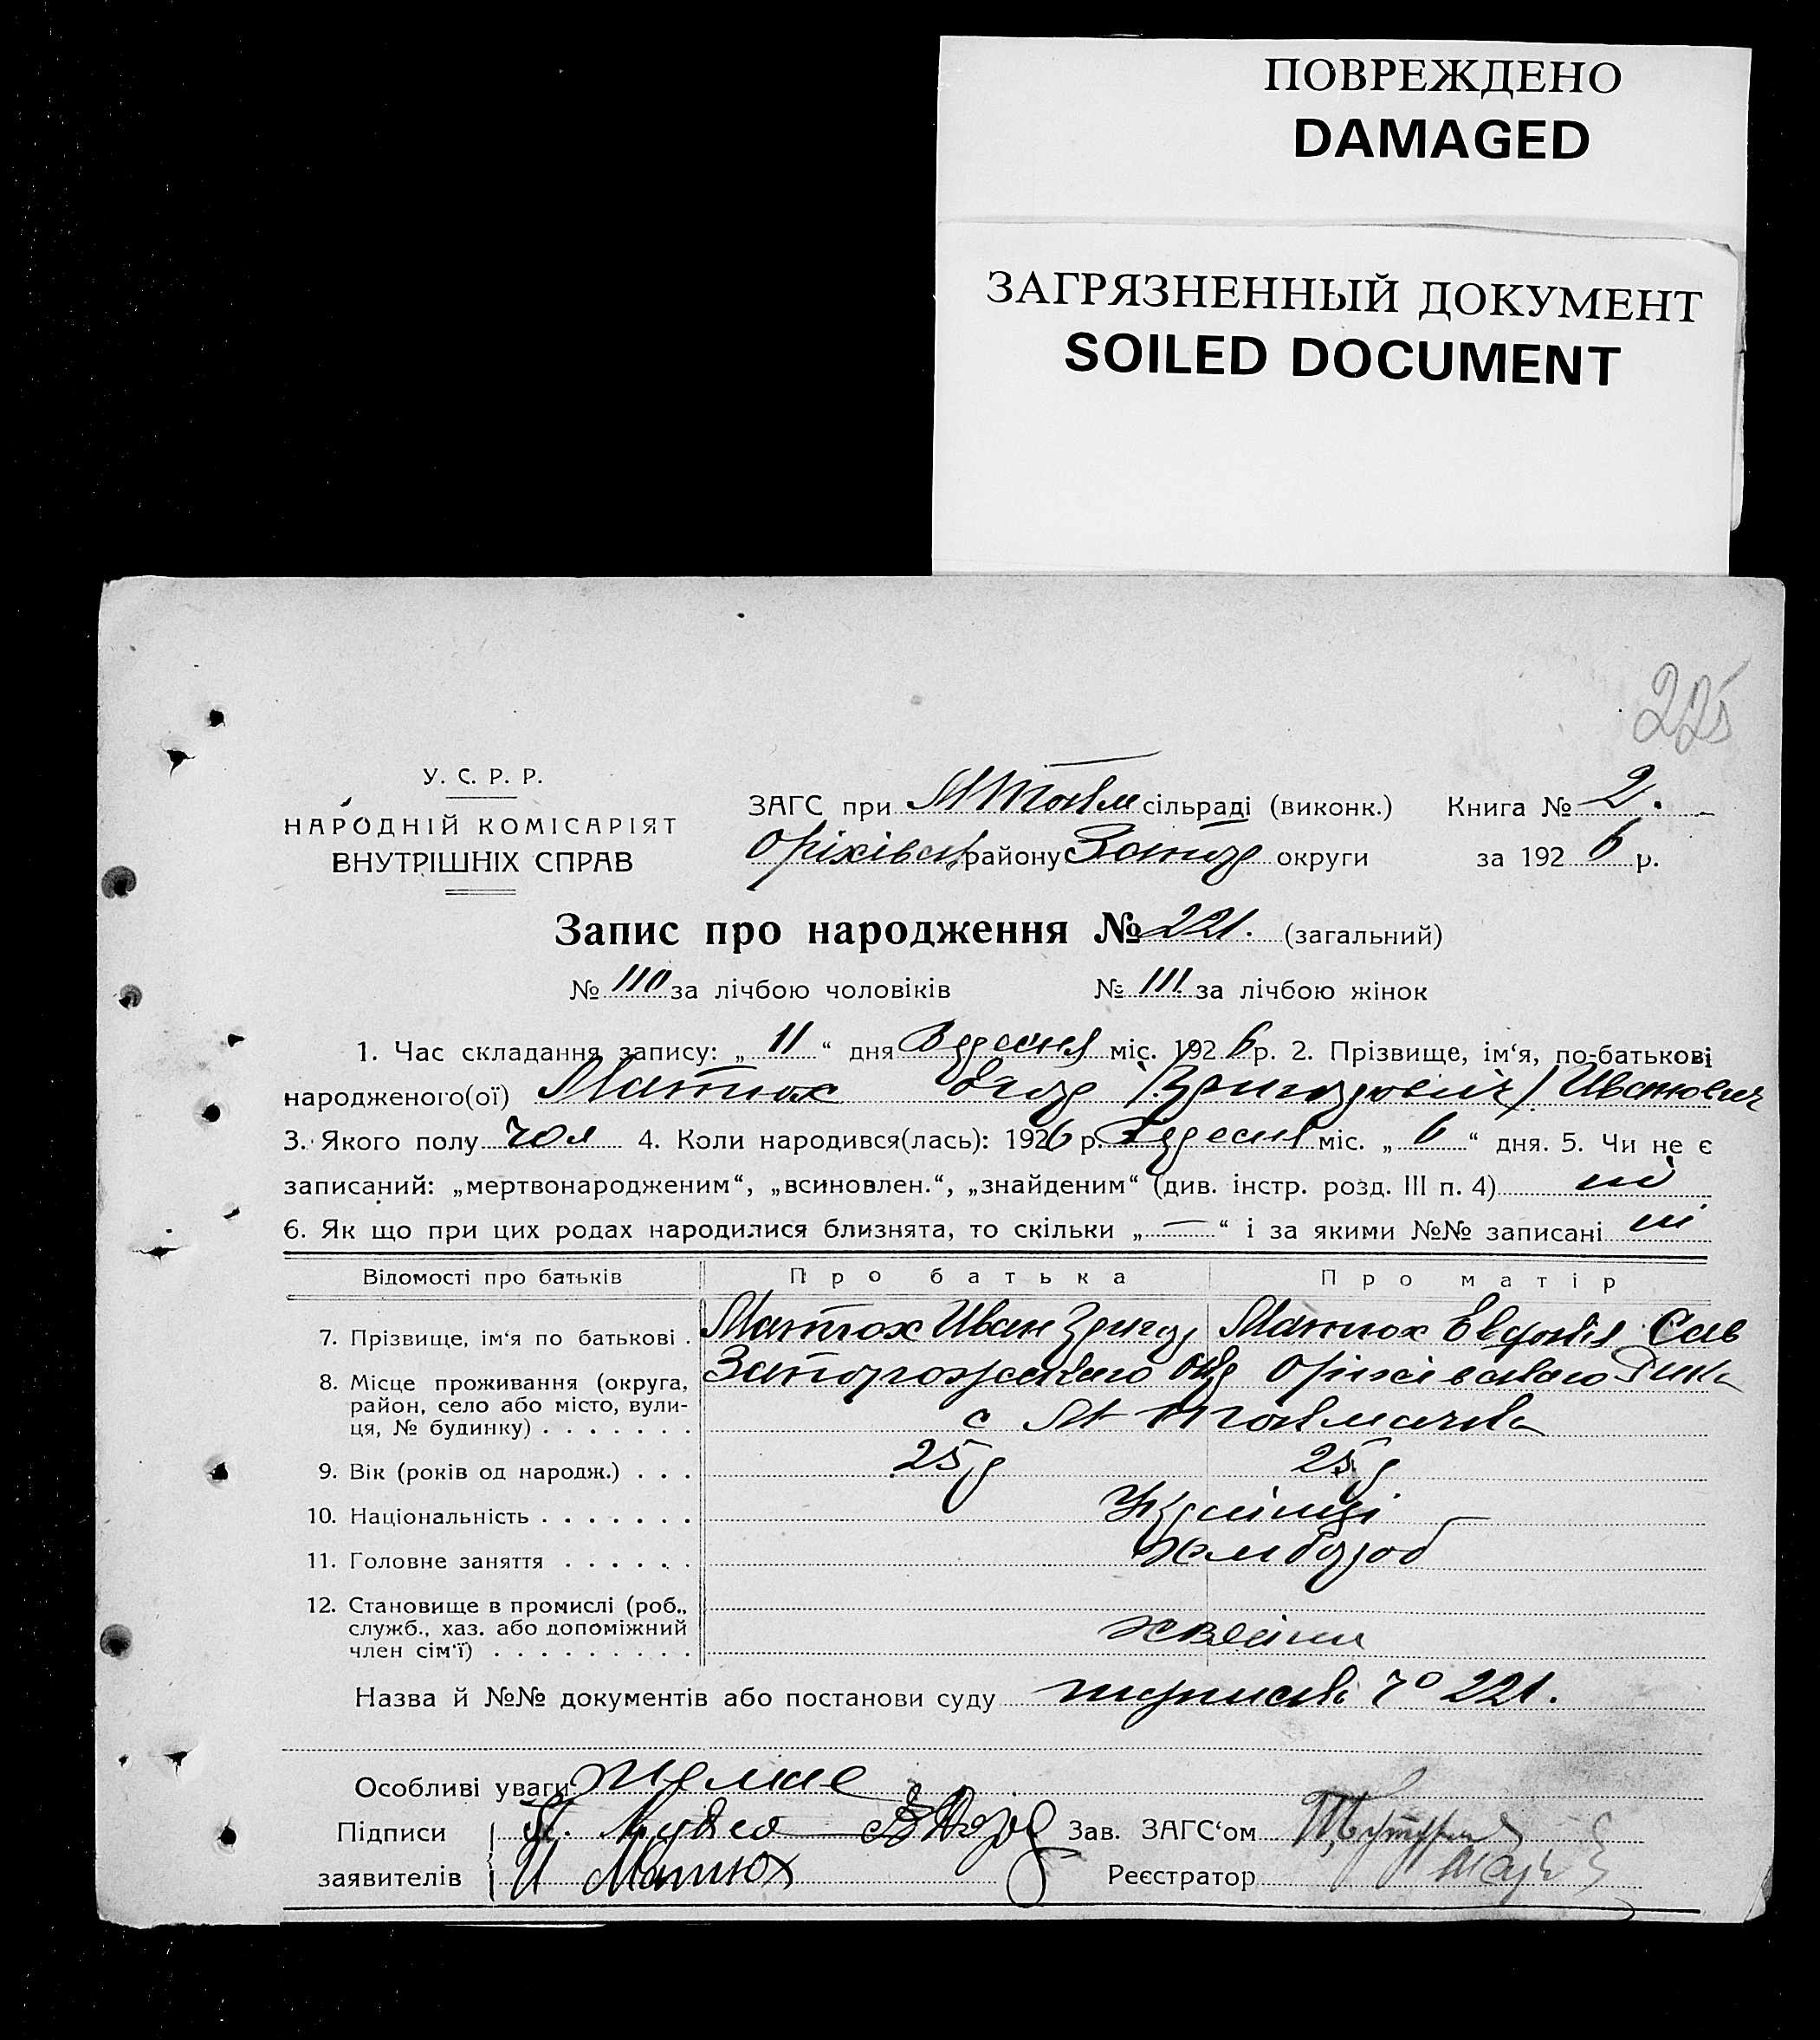 ПОВРЕЖДЕНО
DAMAGED
ЗАГРЯЗНЕННЫЙ ДОКУМЕНТ
SOILED DOCUMENT
225
У. С. Р. Р.
НАРОДНІЙ КОМІСАРІЯТ
ВНУТРІШНІХ СПРАВ
ЗАГС при МТокм сільраді (виконк.) Книга № 2.
Оріхівськ району Запор округи за 1926 р.
Запис про народження № 221. (загальний)
№ 110 за лічбою чоловіків № 111 за лічбою жінок
1. Час складання запису: „ 11 “ дня Вересня міс. 1926 р. 2. Прізвище, ім‘я, по-батькові
народженого(ої) Матюх Егор (Григорович) Иванович
3. Якого полу чол 4. Коли народився(лась): 1926 р. Вересня міс. „ 6 “ дня. 5. Чи не є
записаний: „мертвонародженим“, „всиновлен.“, „знайденим“ (див. інстр. розд. III п. 4) ні
6. Як що при цих родах народилися близнята, то скільки „ — “ і за якими №№ записані ні
Відомості про батьків Про батька Про матір
7. Прізвище, ім‘я по батькові . Матюх Иван Григор Матюх Евфокія Сав
8. Місце проживання (округа, Запорожського окр Оріхівського
район, село або місто, вули-
ця, № будинку) . . . . . . . с М Токмачка
9. Вік (років од народж.) . . . 25 р 25 р
10. Національність . . . . . . . Українці
11. Головне заняття . . . . . . хлібороб
12. Становище в промислі (роб.,
служб., хаз. або допоміжний
член сім‘ї) . . . . . . . . . хазяіни
Назва й №№ документів або постанови суду 221.
Особливі уваги Немае
Підписи Зав. ЗАГС‘ом
заявителів И Матюх Реєстратор